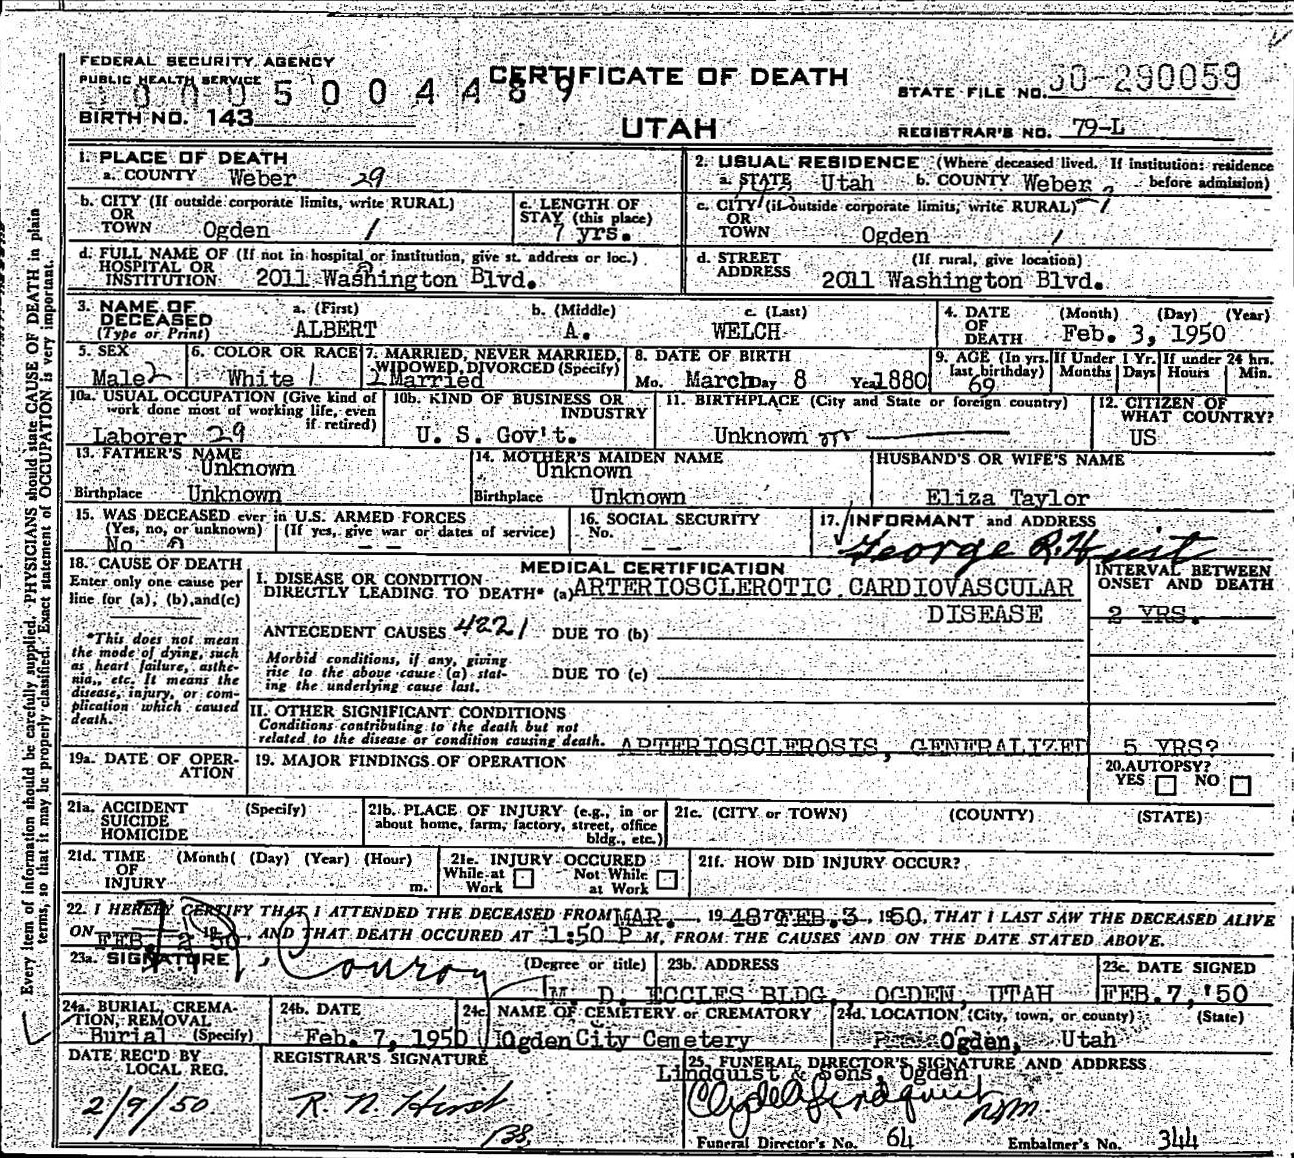 FEDERAL SECURITY AGENCY
PUBLIC HEALTH SERVICE
CERTIFICATE OF DEATH
STATE FILE NO. 50-290059
BIRTH NO. 143
UTAH
REGISTRAR'S NO. 79-L
1. PLACE OF DEATH
a. COUNTY Weber 29
2. USUAL RESIDENCE (Where deceased lived. If institution: residence before admission)
a. STATE Utah b. COUNTY Weber
b. CITY (If outside corporate limits, write RURAL)
OR
TOWN Ogden 1
c. LENGTH OF
STAY (this place)
7 yrs.
c. CITY (if outside corporate limits, write RURAL)
OR
TOWN Ogden 1
d. FULL NAME OF (If not in hospital or institution, give st. address or loc.)
HOSPITAL OR
INSTITUTION 2011 Washington Blvd.
d. STREET (If rural, give location)
ADDRESS 2011 Washington Blvd.
3. NAME OF
DECEASED
(Type or Print)
a. (First) b. (Middle) c. (Last)
ALBERT A. WELCH
4. DATE (Month) (Day) (Year)
OF
DEATH Feb. 3, 1950
5. SEX
Male 2
6. COLOR OR RACE
White 1
7. MARRIED, NEVER MARRIED,
WIDOWED, DIVORCED (Specify)
2 Married
8. DATE OF BIRTH
Mo. March Day 8 Year 1880
9. AGE (In yrs. last birthday)
69
If Under 1 Yr.
Months Days
If under 24 hrs.
Hours Min.
10a. USUAL OCCUPATION (Give kind of
work done most of working life, even
if retired)
Laborer 29
10b. KIND OF BUSINESS OR
INDUSTRY
U. S. Gov't.
11. BIRTHPLACE (City and State or foreign country)
Unknown
12. CITIZEN OF
WHAT COUNTRY?
US
13. FATHER'S NAME
Unknown
Birthplace Unknown
14. MOTHER'S MAIDEN NAME
Unknown
Birthplace Unknown
HUSBAND'S OR WIFE'S NAME
Eliza Taylor
15. WAS DECEASED ever in U.S. ARMED FORCES
(Yes, no, or unknown) (If yes, give war or dates of service)
No 0 - -
16. SOCIAL SECURITY
No. - -
17. INFORMANT and ADDRESS
George R. Hust
18. CAUSE OF DEATH
Enter only one cause per
line for (a), (b), and (c)
*This does not mean
the mode of dying, such
as heart failure, asthe-
nia, etc. It means the
disease, injury, or com-
plication which caused
death.
MEDICAL CERTIFICATION
I. DISEASE OR CONDITION
DIRECTLY LEADING TO DEATH* (a) ARTERIOSCLEROTIC CARDIOVASCULAR
DISEASE
ANTECEDENT CAUSES 4221 DUE TO (b)
Morbid conditions, if any, giving
rise to the above cause (a) stat-
ing the underlying cause last.
DUE TO (c)
INTERVAL BETWEEN
ONSET AND DEATH
2 YRS.
II. OTHER SIGNIFICANT CONDITIONS
Conditions contributing to the death but not
related to the disease or condition causing death. ARTERIOSCLEROSIS, GENERALIZED 5 YRS?
19a. DATE OF OPER-
ATION
19. MAJOR FINDINGS OF OPERATION
20. AUTOPSY?
YES NO
21a. ACCIDENT (Specify)
SUICIDE
HOMICIDE
21b. PLACE OF INJURY (e.g., in or
about home, farm, factory, street, office
bldg., etc.)
21c. (CITY or TOWN) (COUNTY) (STATE)
21d. TIME (Month) (Day) (Year) (Hour)
OF
INJURY m.
21e. INJURY OCCURED
While at Work Not While at Work
21f. HOW DID INJURY OCCUR?
22. I HEREBY CERTIFY THAT I ATTENDED THE DECEASED FROM MAR. 1948 TO FEB. 3, 1950. THAT I LAST SAW THE DECEASED ALIVE
ON FEB. 2 1950, AND THAT DEATH OCCURED AT 1:50 P M, FROM THE CAUSES AND ON THE DATE STATED ABOVE.
23a. SIGNATURE (Degree or title)
Conroy M. D.
23b. ADDRESS
ECCLES BLDG., OGDEN, UTAH
23c. DATE SIGNED
FEB. 7, '50
24a. BURIAL, CREMA-
TION, REMOVAL
Burial (Specify)
24b. DATE
Feb. 7, 1950
24c. NAME OF CEMETERY or CREMATORY
Ogden City Cemetery
24d. LOCATION (City, town, or county) (State)
Ogden, Utah
DATE REC'D BY
LOCAL REG.
2/9/50
REGISTRAR'S SIGNATURE
R. N. Hirst
25. FUNERAL DIRECTOR'S SIGNATURE AND ADDRESS
Lindquist & Sons, Ogden
Clyde A Lindquist
Funeral Director's No. 64 Embalmer's No. 344
Every item of information should be carefully supplied. PHYSICIANS should state CAUSE OF DEATH in plain
terms, so that it may be properly classified. Exact statement of OCCUPATION is very important.